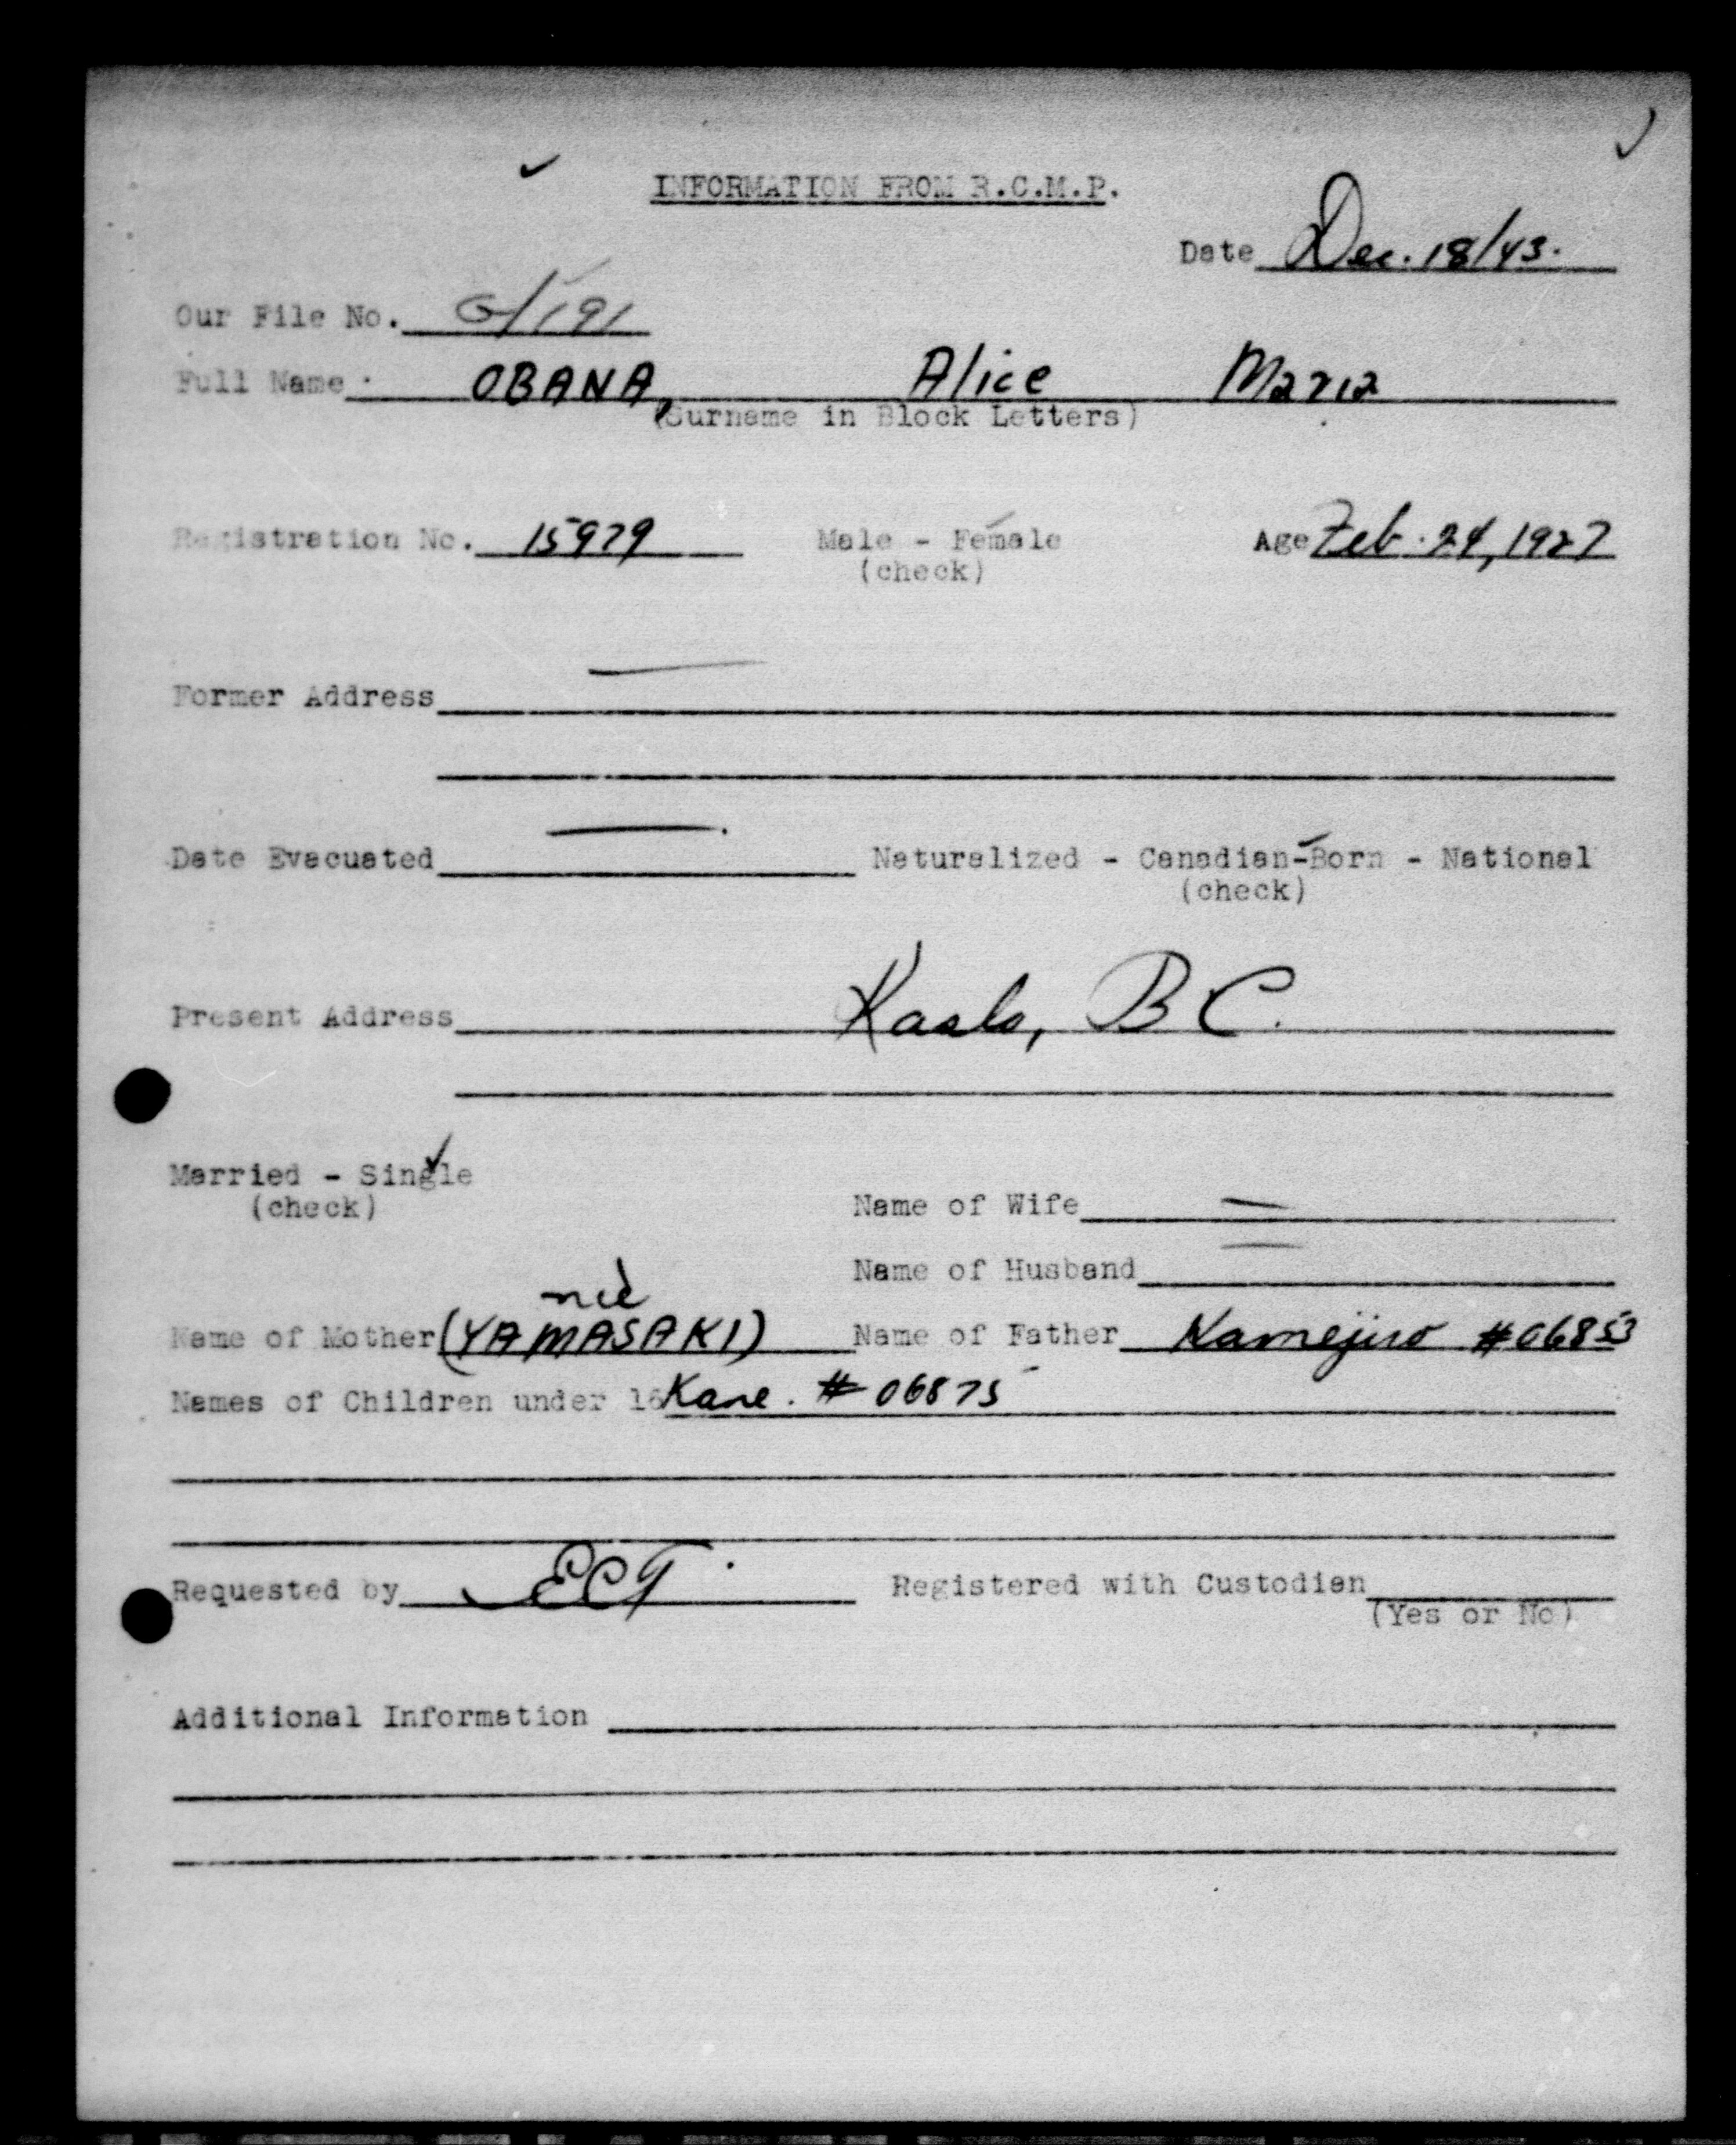 INFORMATION FROM R.C.M.P.
Date Dec. 18/43.
Our File No. G/191
Full Name OBANA, Alice Maria
(Surname in Block Letters)
Registration No. 15979 Male - Female Age Feb. 24, 1927
(check)
Former Address
Date Evacuated Naturalized - Canadian-Born - National
(check)
Present Address Kaslo, BC.
Married - Single
(check)
Name of Wife
Name of Husband
née
Name of Mother (YAMASAKI) Name of Father Kamejiro #06853
Names of Children under 16 Kane. #06875
Requested by ECT Registered with Custodian
(Yes or No)
Additional Information